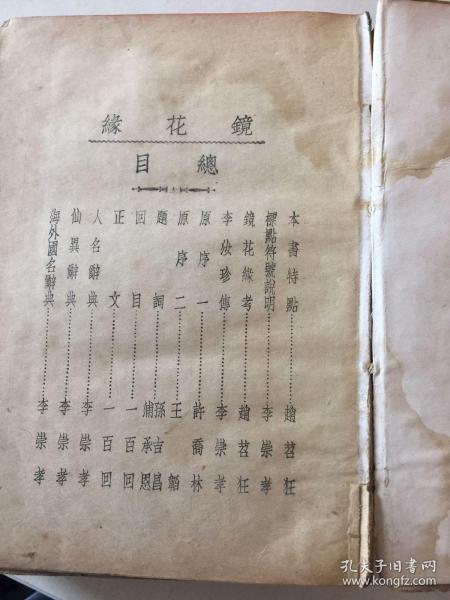 鏡花緣
總目
本書特點…………趙苕狂
標點符號說明…………李崇孝
鏡花緣考…………趙苕狂
李汝珍傳…………李崇孝
原序一…………許喬林
原序二…………王韜
題詞…………孫吉昌 浦承恩
回目…………一百回
正文…………一百回
人名辭典…………李崇孝
仙異辭典…………李崇孝
海外國名辭典…………李崇孝
孔夫子旧书网
www.kongfz.com